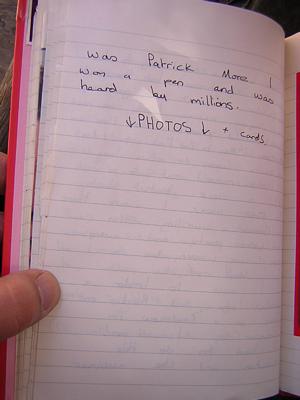 was Patrick More I
won a pen and was
heard by millions.
↓ PHOTOS ↓ + cards.